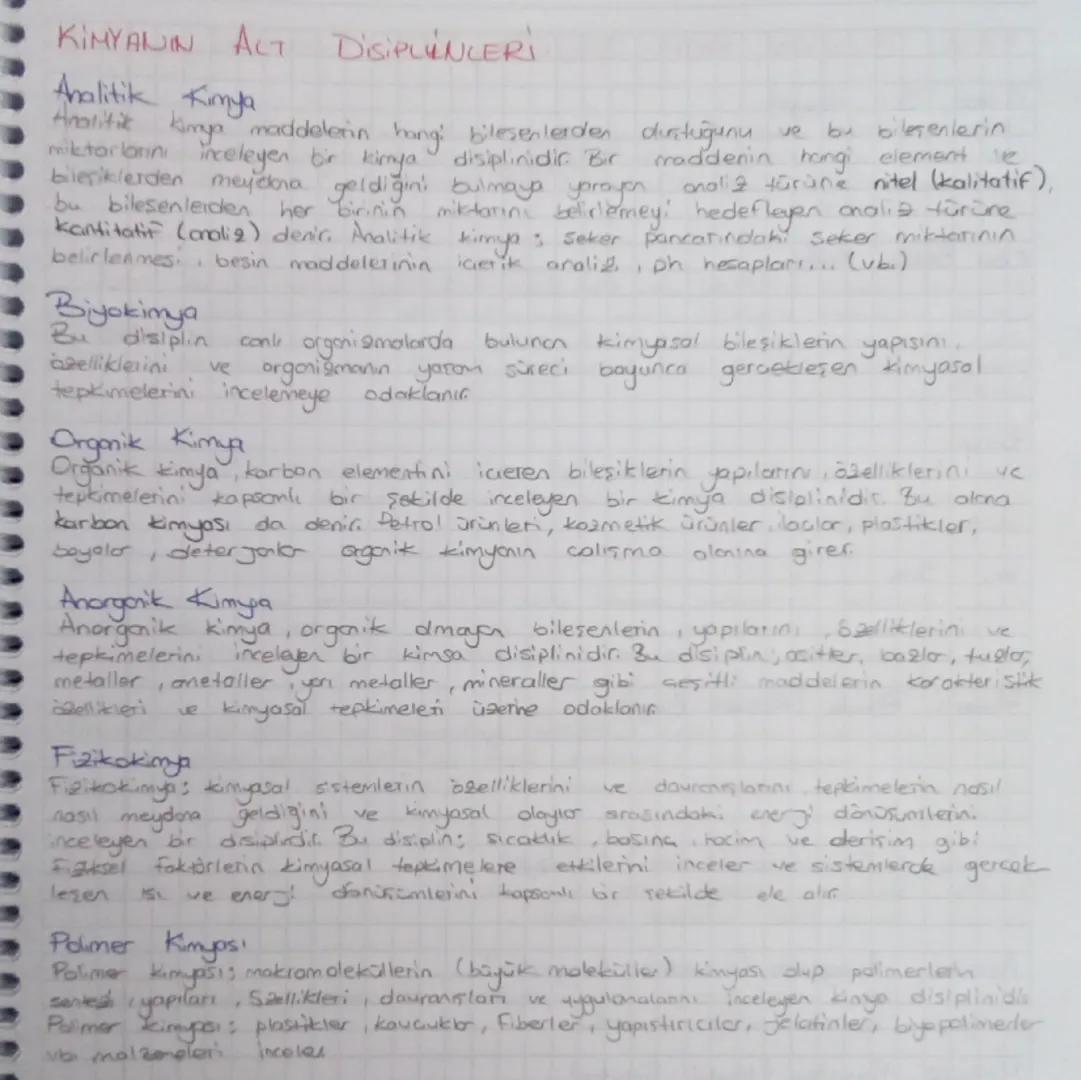 KİMYANIN ALT DİSİPLİNLERİ
Analitik Kimya
Analitik kimya maddelerin hangi bileşenlerden oluştuğunu ve bu bileşenlerin
miktarlarını inceleyen bir kimya disiplinidir. Bir maddenin hangi element ve
bileşiklerden meydana geldiğini bulmaya yarayan analiz türüne nitel (kalitatif),
bu bileşenlerden her birinin miktarını belirlemeyi hedefleyen analiz türüne
kantitatif (analiz) denir. Analitik kimya; şeker pancarındaki şeker miktarının
belirlenmesi, besin maddelerinin içerik analizi, ph hesapları... (vb.)
Biyokimya
Bu disiplin canlı organizmalarda bulunan kimyasal bileşiklerin yapısını,
özelliklerini ve organizmanın yaşam süreci boyunca gerçekleşen kimyasal
tepkimelerini incelemeye odaklanır.
Organik Kimya
Organik kimya, karbon elementini içeren bileşiklerin yapılarını, özelliklerini ve
tepkimelerini kapsamlı bir şekilde inceleyen bir kimya disiplinidir. Bu alana
karbon kimyası da denir. Petrol ürünleri, kozmetik ürünler, ilaçlar, plastikler,
boyalar, deterjanlar organik kimyanın çalışma alanına girer.
Anorganik Kimya
Anorganik kimya, organik olmayan bileşenlerin, yapılarını, özelliklerini ve
tepkimelerini inceleyen bir kimsa disiplinidir. Bu disiplin; asitler, bazlar, tuzlar,
metaller, ametaller, yarı metaller, mineraller gibi çeşitli maddelerin karakteristik
özellikleri ve kimyasal tepkimeleri üzerine odaklanır.
Fizikokimya
Fizikokimya; kimyasal sistemlerin özelliklerini ve davranışlarını, tepkimelerin nasıl
nasıl meydana geldiğini ve kimyasal olaylar arasındaki enerji dönüşümlerini
inceleyen bir disiplindir. Bu disiplin; sıcaklık, basınç, hacim ve derişim gibi
fiziksel faktörlerin kimyasal tepkimelere etkilerini inceler ve sistemlerde gerçek
leşen ısı ve enerji dönüşümlerini kapsamlı bir şekilde ele alır.
Polimer Kimyası
Polimer kimyası; makromoleküllerin (büyük moleküller) kimyası olup polimerlerin
sentezi, yapıları, özellikleri, davranışları ve uygulamalarını inceleyen kimya disiplinidir.
Polimer kimyası; plastikler, kauçuklar, fiberler, yapıştırıcılar, jelatinler, biyopolimerler
vb. malzemeleri inceler